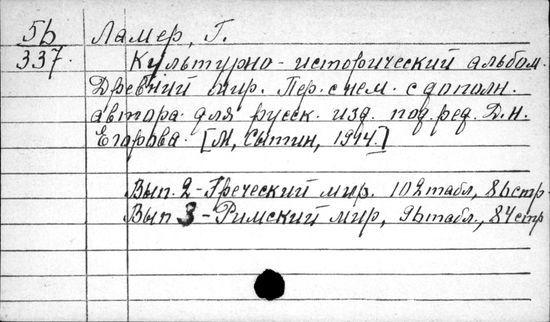 5b Ламер, Г.
337. Культурно-исторический альбом.
Древний мир. Пер. с нем. с дополн.
автора для русск. изд. под ред. Д. Н.
Егорова. [М, Сытин, 1914.]
Вып. 2 - Греческий мир. 102 табл, 86 стр
Вып 3 - Римский мир, 96 табл., 84 стр